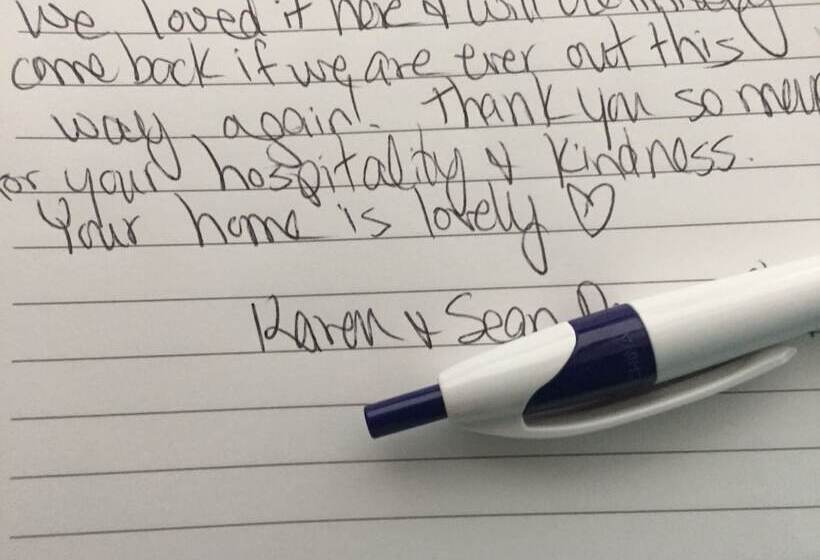 We loved it here & will definitely
come back if we are ever out this
way again! Thank you so much
for your hospitality & kindness.
Your home is lovely ♡
Karen & Sean